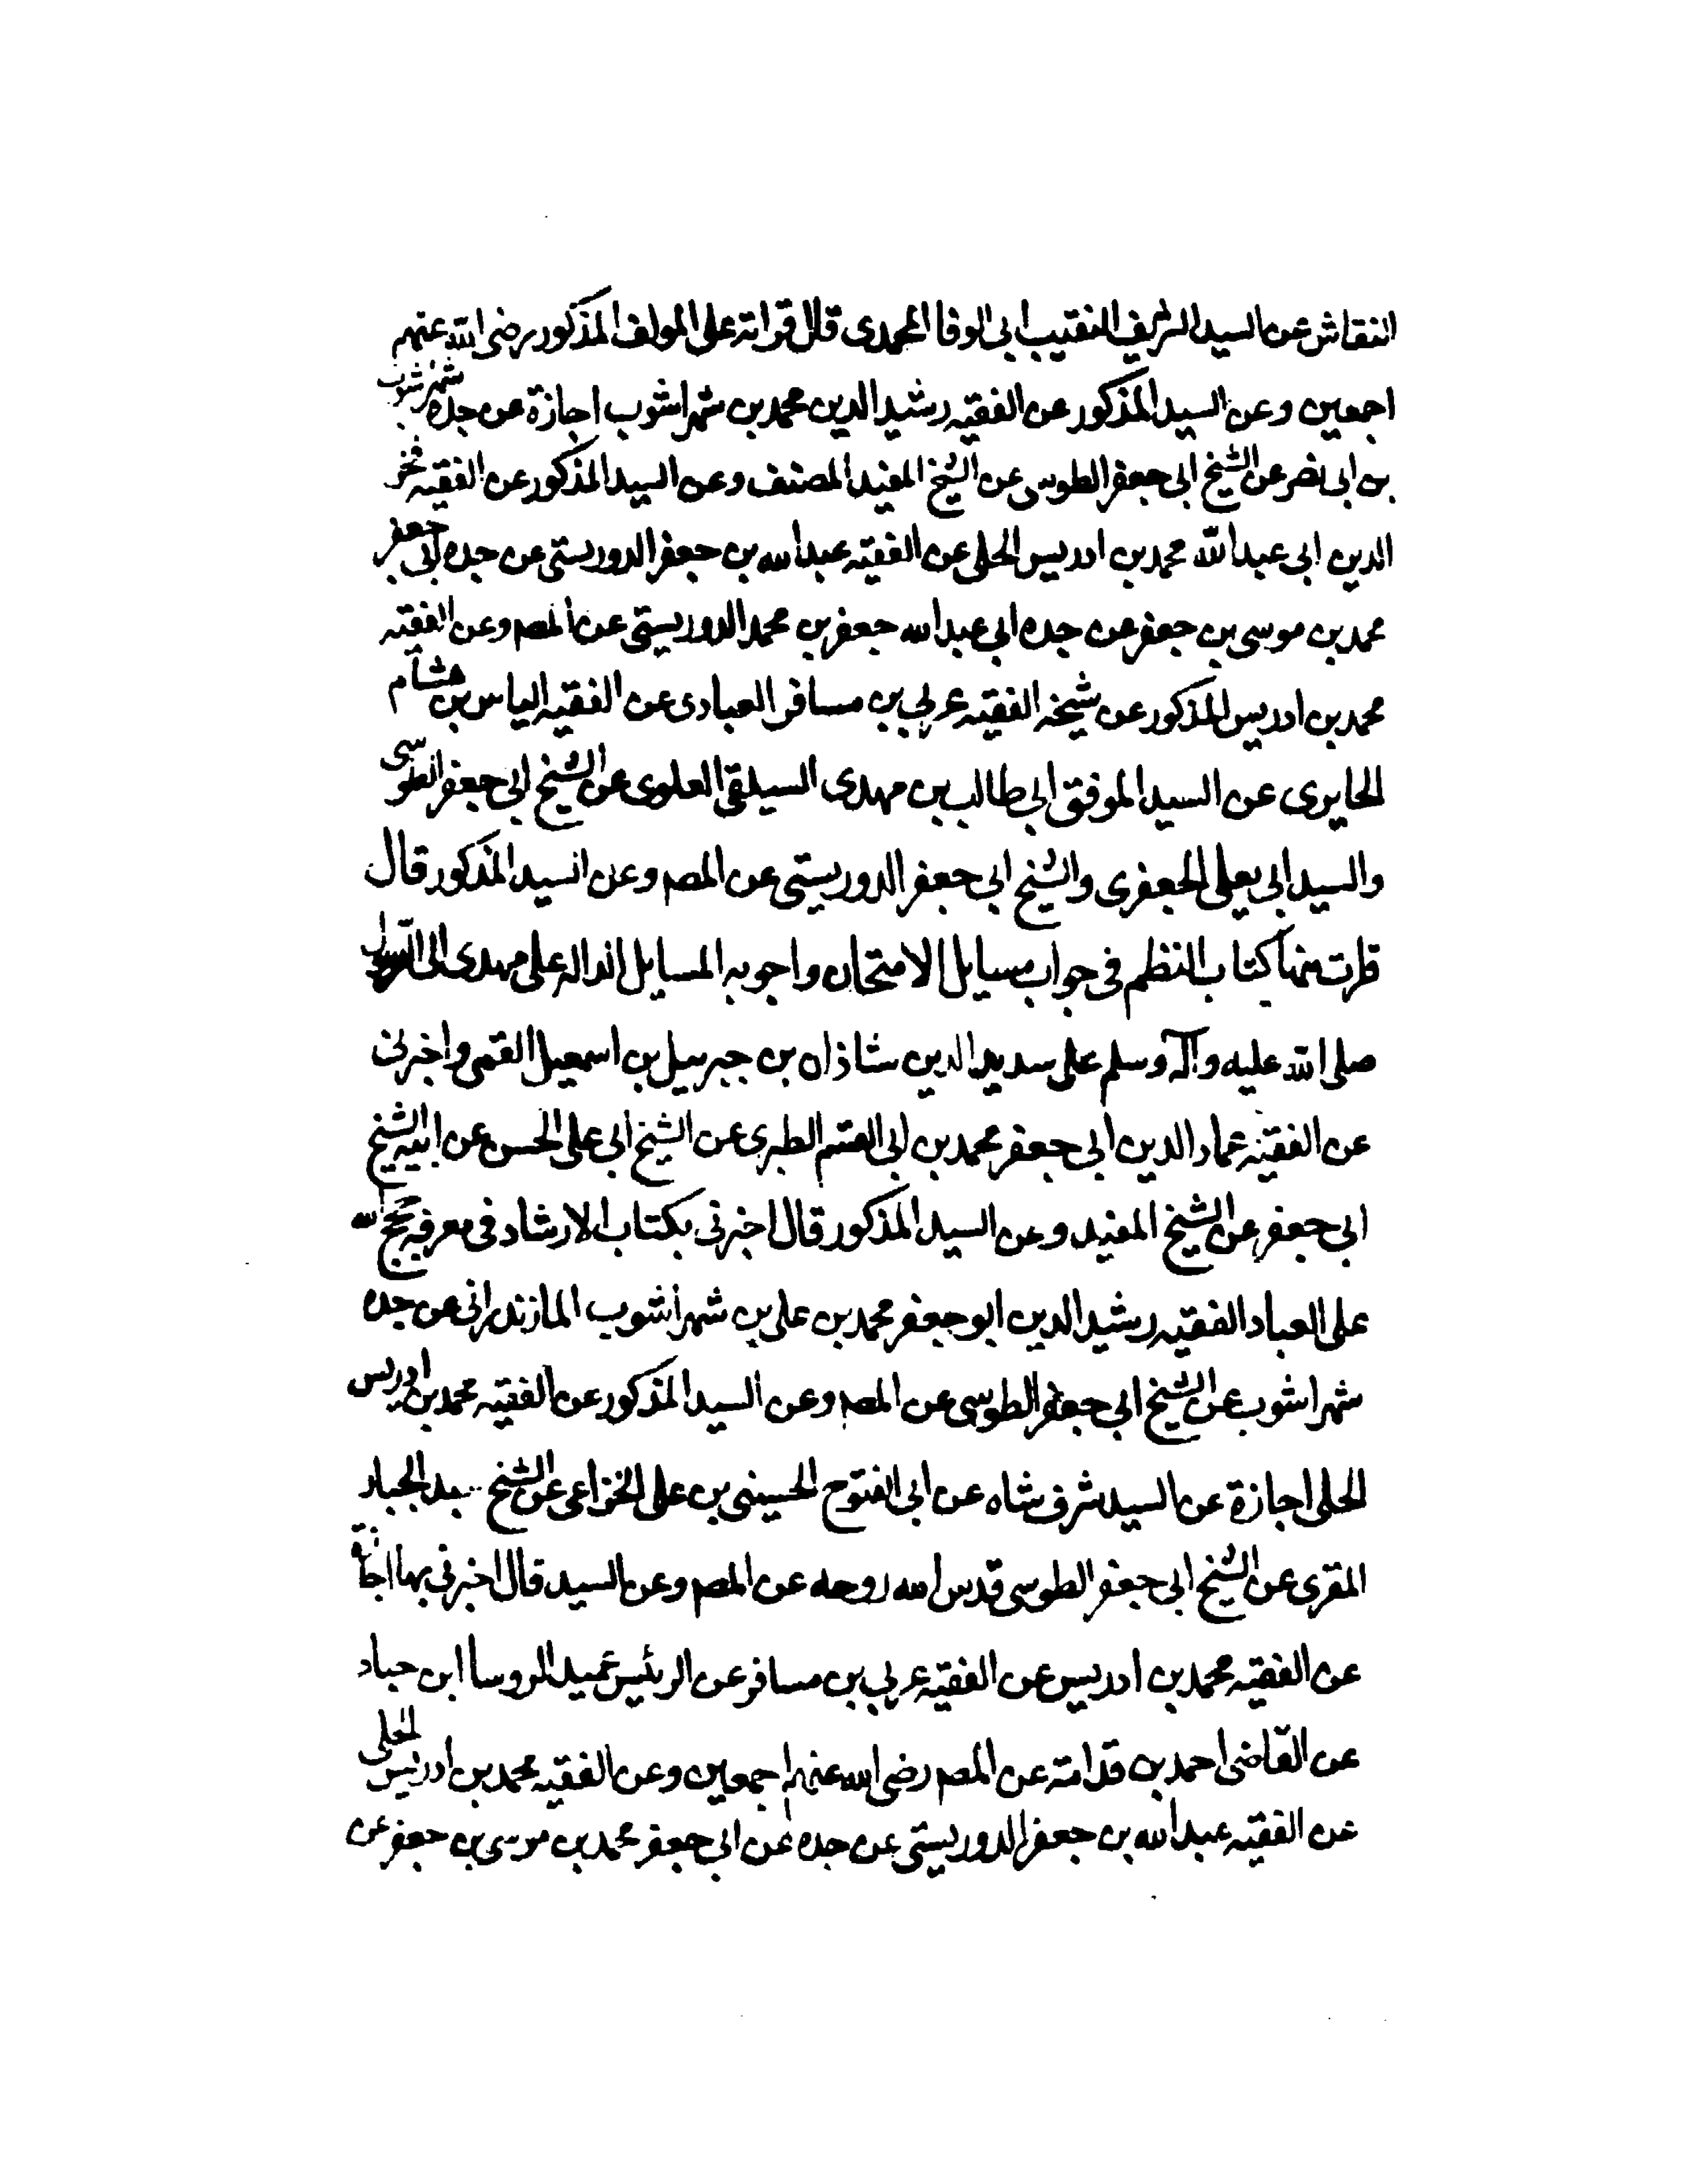 النقاش عن السيد الشريف النقيب ابى الوفا المحمدى قال قراته على المولف المذكور رضى الله عنهم
اجمعين وعن السيد المذكور عن الفقيه رشيد الدين محمد بن شهراشوب اجازة عن جده شهرشوب
بن ابى نصر عن الشيخ ابى جعفر الطوسى عن الشيخ المفيد المصنف وعن السيد المذكور عن الفقيه فخر
الدين ابى عبد الله محمد بن ادريس الحلى عن الفقيه عبد الله بن جعفر الدوريستى عن جده ابى جعفر
محمد بن موسى بن جعفر عن جده ابى عبد الله جعفر بن محمد الدوريستى عن المصـ وعن الفقيه
محمد بن ادريس المذكور عن شيخه الفقيه عربى بن مسافر العبادى عن الفقيه الياس بن هشام
الحايرى عن السيد الموفق ابى طالب بن مهدى السيلقى العلوى عن الشيخ ابى جعفر الطوسى
والسيد ابى يعلى الجعفرى والشيخ ابى جعفر الدوريستى عن المصـ وعن السيد المذكور قال
قرات منها كتاب النظم فى جواب مسايل الامتحان واجوبه المسايل الداله على مهدى الى الرسول
صلى الله عليه وآله وسلم على سديد الدين شاذان بن جبرييل بن اسمعيل القمى واخبرنى
عن الفقيه عماد الدين ابى جعفر محمد بن ابى القسم الطبرى عن الشيخ ابى على الحسن عن ابيه الشيخ
ابى جعفر عن الشيخ المفيد وعن السيد المذكور قال اخبرنى بكتاب الارشاد فى معرفة حجج الله
على العباد الفقيه رشيد الدين ابو جعفر محمد بن على بن شهراشوب المازندرانى عن جده
شهراشوب عن الشيخ ابى جعفر الطوسى عن المصـ وعن السيد المذكور عن الفقيه محمد بن ادريس
الحلى اجازة عن السيد شرف شاه عن ابى الفتوح الحسينى بن على الخزاعى عن الشيخ عبد الجبار
المقرى عن الشيخ ابى جعفر الطوسى قدس الله روحه عن المصـ وعن السيد قال اخبرنى بها اجازة
عن الفقيه محمد بن ادريس عن الفقيه عربى بن مسافر عن الرئيس عميد الروسا ابن حباد
عن القاضى احمد بن قدامة عن المصـ رضى الله عنهم اجمعين وعن الفقيه محمد بن ادريس الحلى
عن الفقيه عبد الله بن جعفر الدوريستى عن جده عن ابى جعفر محمد بن موسى بن جعفر عن